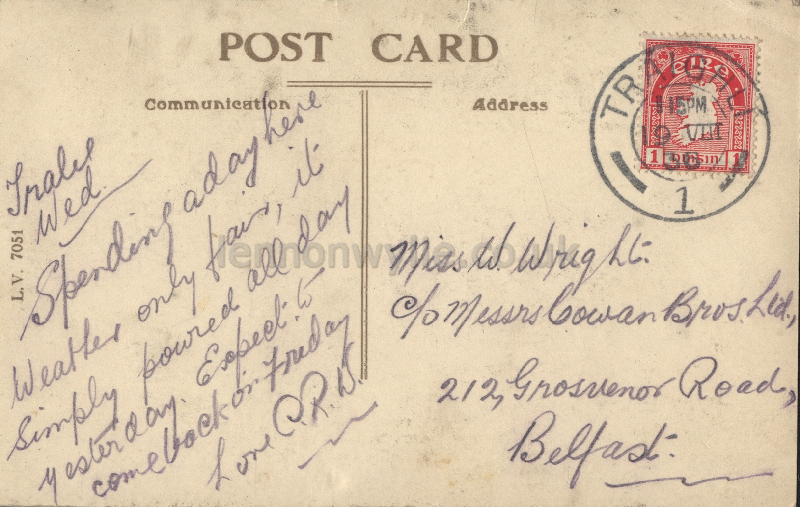 POST CARD
Communication
Address
Tralee
Wed.
Spending a day here
Weather only fair, it
simply poured all day
yesterday. Expect to
come back on Friday
Love C.R.W.
L.V. 7051
Miss W. Wright.
c/o Messrs Cowan Bros. Ltd.,
212, Grosvenor Road,
Belfast.
éire
1 pinsin 1
TRÁIGH LÍ
1 15PM
19 VIII
1
lennonwylie.co.uk